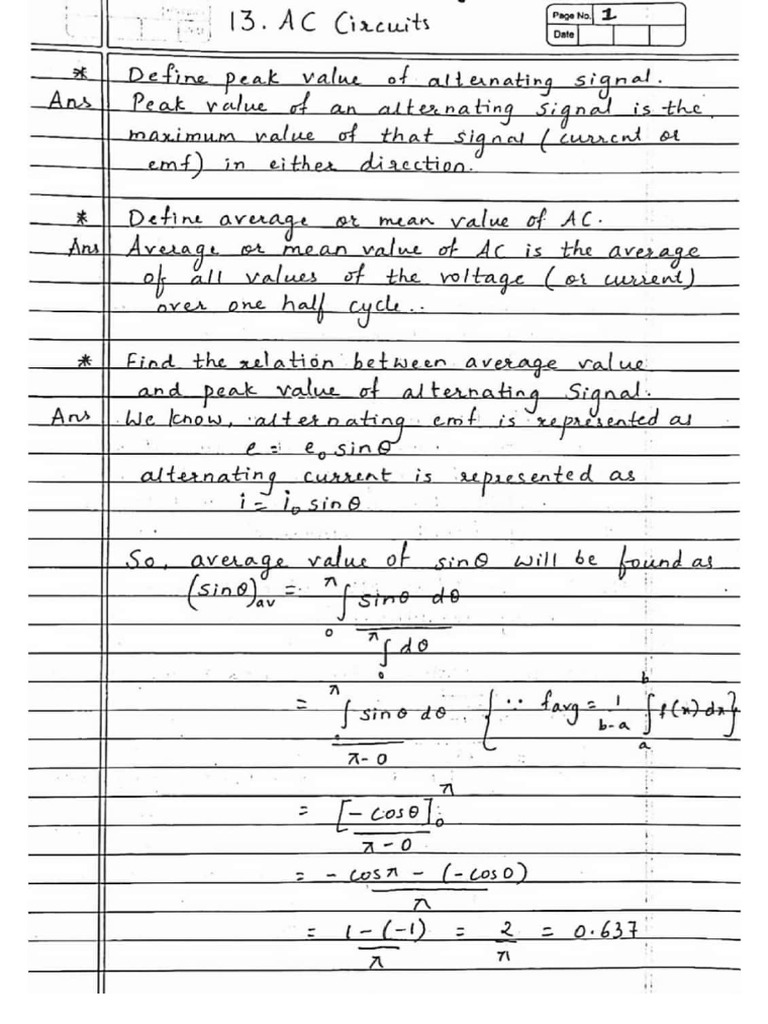 13. AC Circuits
Page No. 1
Date
* Define peak value of alternating signal.
Ans Peak value of an alternating signal is the
maximum value of that signal (current or
emf) in either direction.
* Define average or mean value of AC.
Ans Average or mean value of AC is the average
of all values of the voltage (or current)
over one half cycle..
* Find the relation between average value
and peak value of alternating Signal.
Ans We know, alternating emf is represented as
e = e₀ sinθ
alternating current is represented as
i = i₀ sinθ
So, average value of sinθ will be found as
(sinθ)av = ∫₀^π sinθ dθ / ∫₀^π dθ
= ∫₀^π sinθ dθ / π-0 {∵ favg = 1/b-a ∫ₐᵇ f(x) dx}
= [-cosθ]₀^π / π-0
= -cosπ - (-cos0) / π
= 1-(-1) / π = 2/π = 0.637